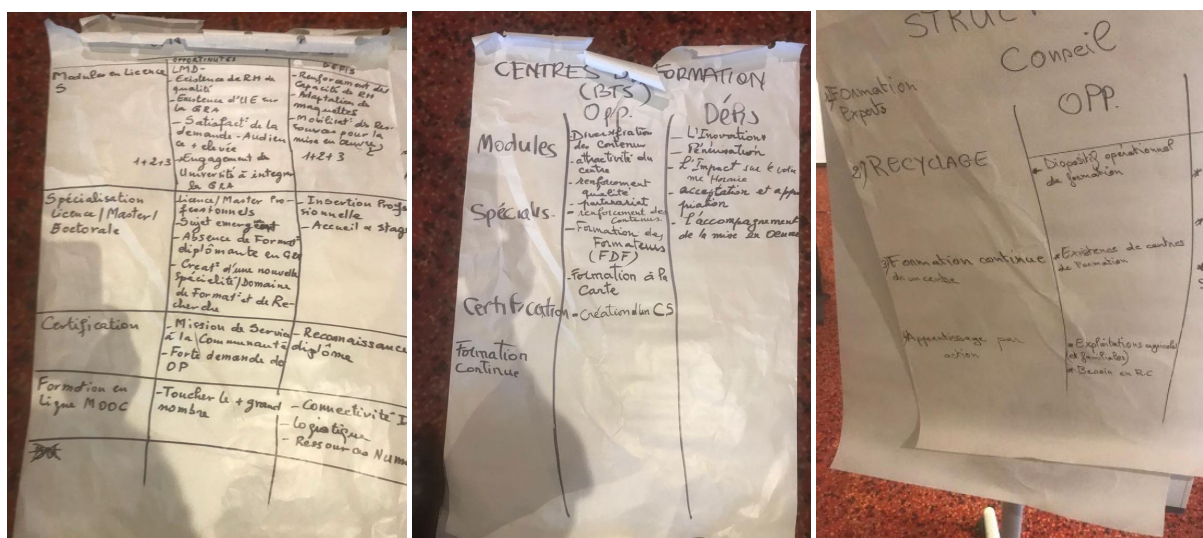 OPPORTINUTES
DEFIS
Modules en Licence
S
LMD-
- Existence de RH de
qualité
- Existence d'UE sur
la GRA
- Satisfact° de la
demande - Audien
ce + elevée
1+2+3
- Engagement de
Université à integrer
la GRA
- Renforcement des
Capacité de RH
- Adaptation de
maquettes
- Mobilisat° des Res-
sources pour la
mise en œuvre
1+2+3
Spécialisation
Licence/Master/
Doctorale
Licence/Master Pro-
fessionnels
- Sujet emergent
- Absence de Format°
diplômante en GRA
- Creat° d'une nouvelle
Spécialité/Domaine
de Format° et de Re-
cherche
- Insertion Profes
sionnelle
- Accueil et Stage
Certification
- Mission de Service
à la Communauté
- Forte demande de
OP
- Reconnaissance
diplôme
Formation en
ligne MOOC
- Toucher le + grand
nombre
- Connectivité I
- Logistique
- Ressources Num
CENTRES DE FORMATION
(BTS)
OPP.
DéfIs
Modules
- Diversification
des contenus
- attractivité du
centre
- renforcement
qualité
- partenariat
- L'Inovation
- Pérénisation
- L'Impact sur le volu
me Horaire
- acceptation et appro
priation
- L'accompagnement
de la mise en Oeuvre
Spécialis-
- renforcement des
Contenus
- Formation des
Formateurs
(FDF)
- Formation à la
Carte
Certification
- Création d'un CS
Formation
Continue
STRUCT
Conseil
OPP.
Formation
Experts
2) RECYCLAGE
- Dispositif operationnel
de formation
3) Formation continue
de un centre
* Existence de centres
de Formation
Apprentissage par
action
* Exploitations agricoles
(et familiales)
* Besoin en R.C